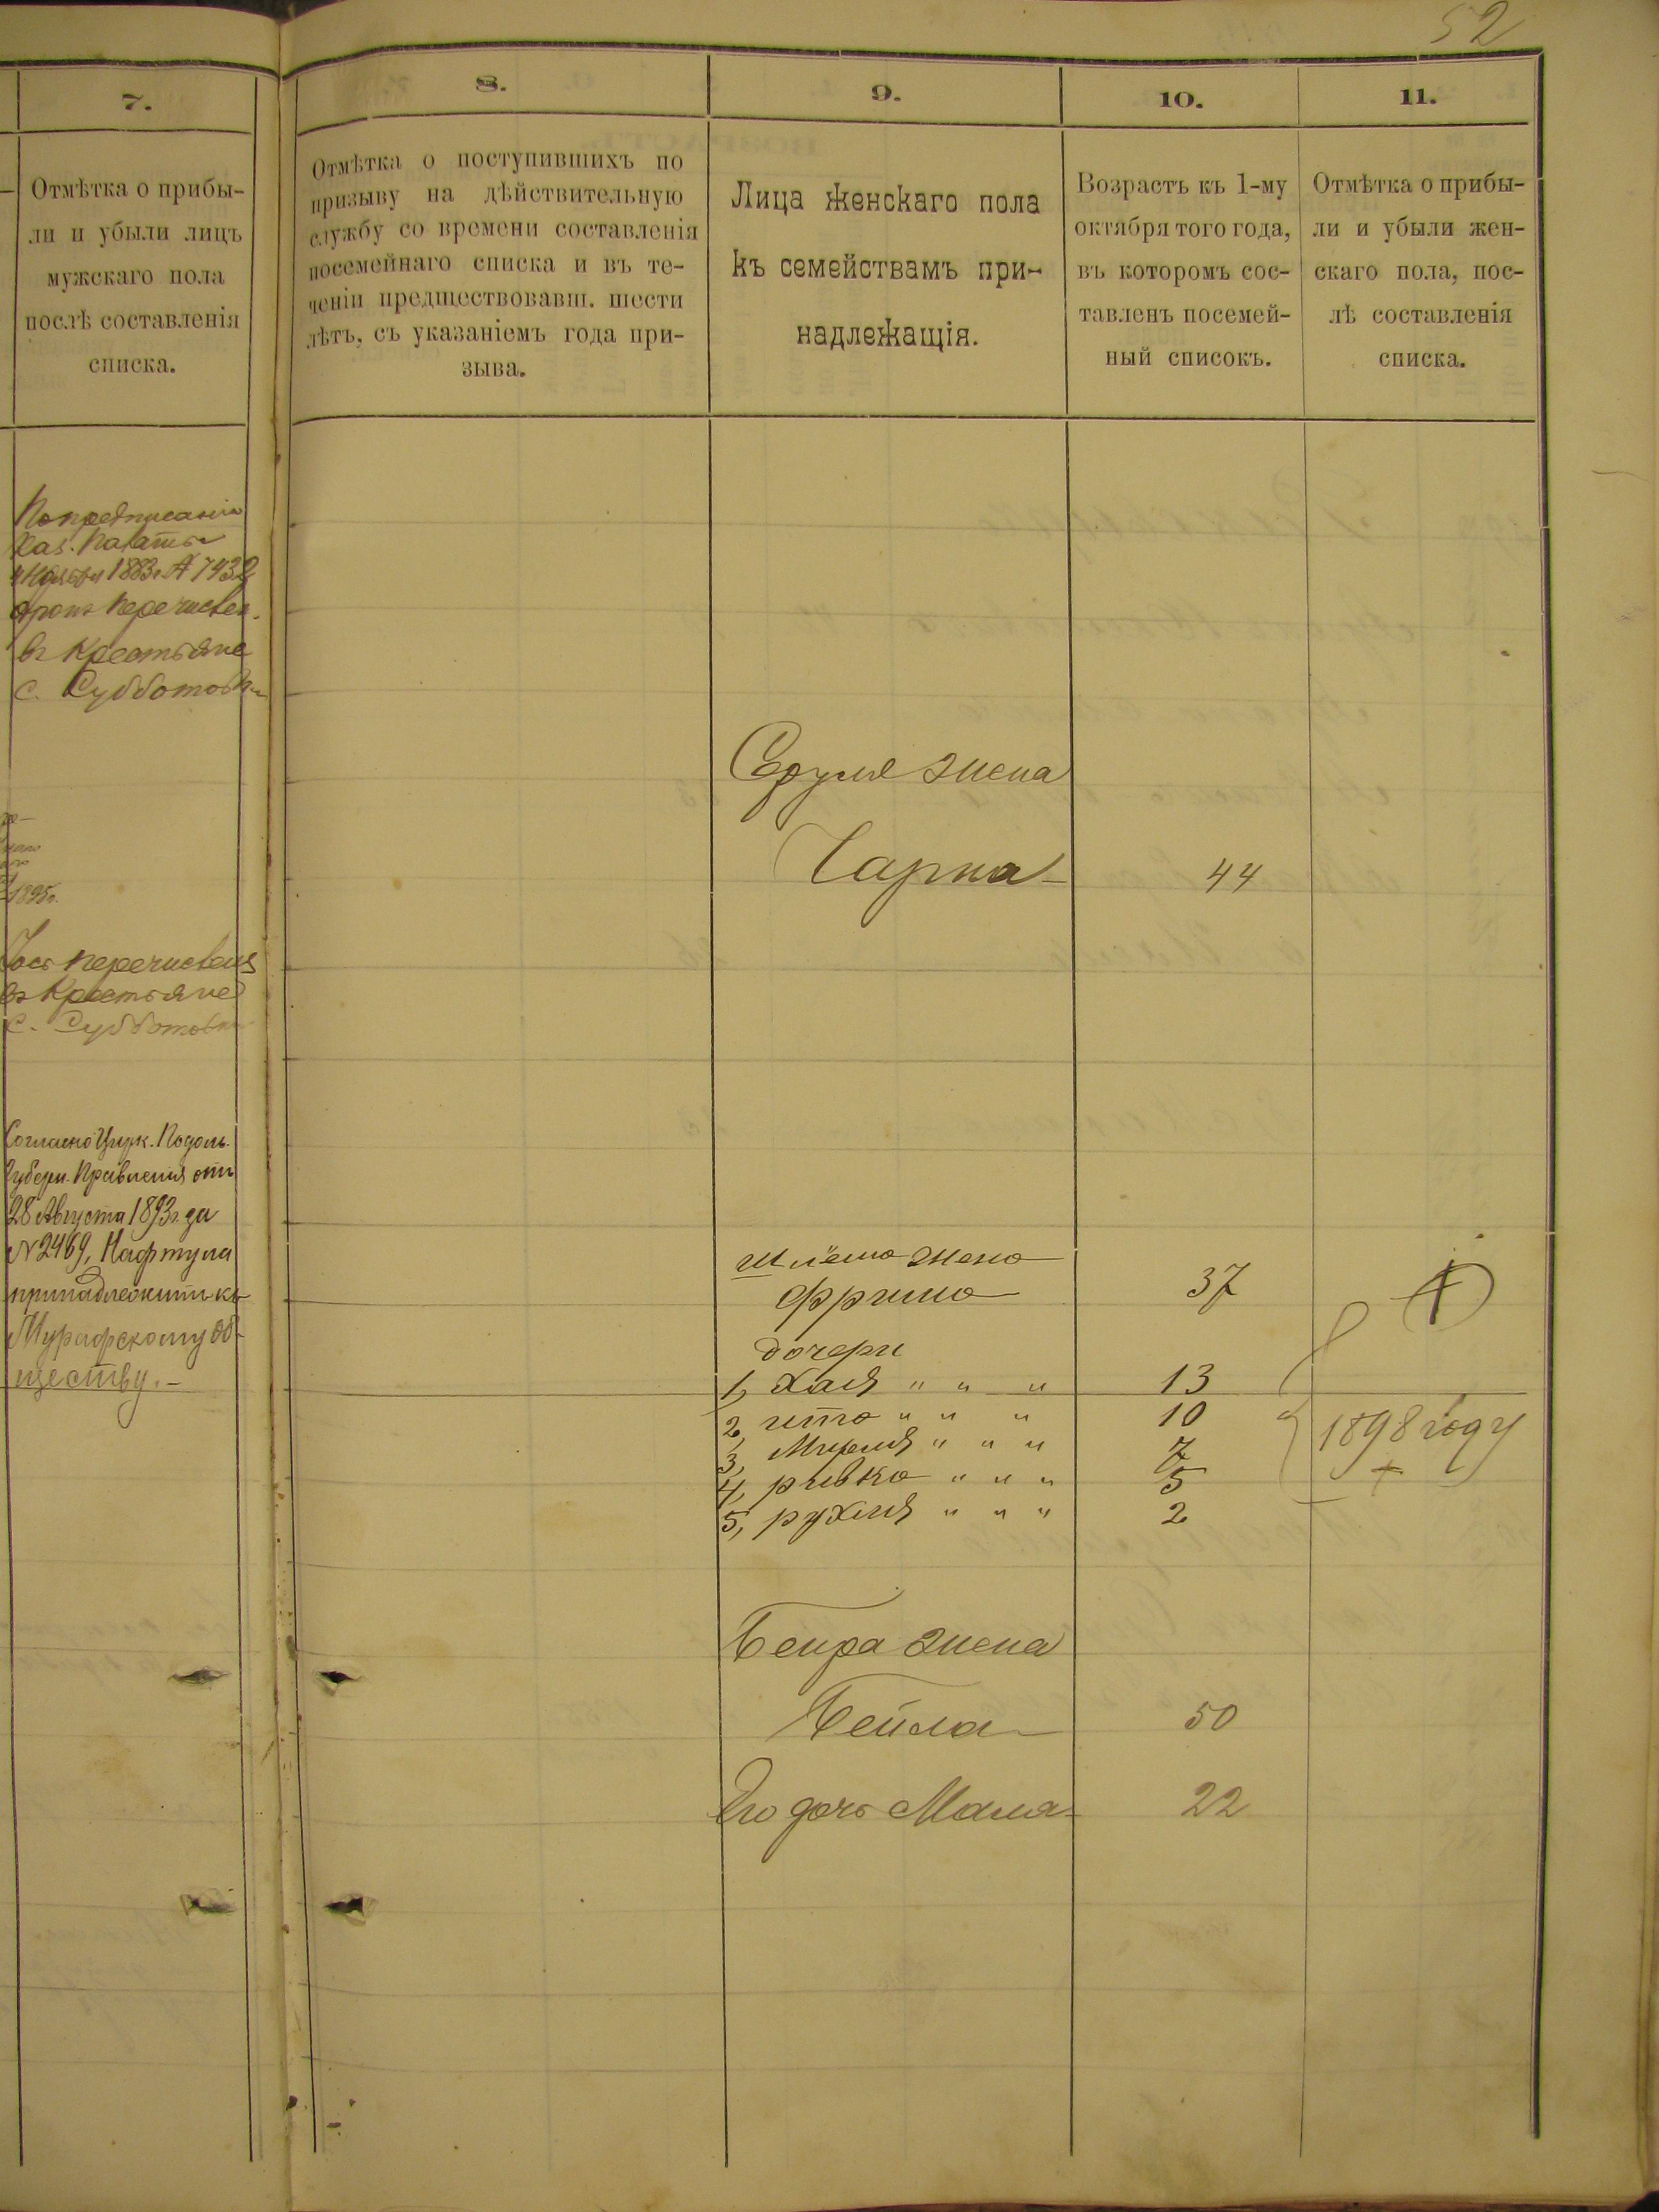 52
7.
8.
9.
10.
11.
Отмѣтка о прибы-
ли и убыли лицъ
мужскаго пола
послѣ составленія
списка.
Отмѣтка о поступившихъ по
призыву на дѣйствительную
службу со времени составленія
посемейнаго списка и въ те-
ченіи предшествовавш. шести
лѣтъ, съ указаніемъ года при-
зыва.
Лица женскаго пола
къ семействамъ при-
надлежащія.
Возрастъ къ 1-му
октября того года,
въ которомъ сос-
тавленъ посемей-
ный списокъ.
Отмѣтка о прибы-
ли и убыли жен-
скаго пола, пос-
лѣ составленія
списка.
По предписанію
Каз. Палаты
Ноября 1883 г. № 7432
перечислен.
въ Крестьяне
с. Субботовки
1895г.
перечисленъ
въ Крестьяне
с. Субботовки
Согласно Цирк. Подоль.
Губерн. Правленія отъ
28 Августа 1893 г. за
№ 2469, Нафтула
принадлежитъ къ
Мурафскому об-
ществу. –
Сруля жена
Чарна 44
Шлёма жена
Фрима 37
дочери
1, Хая " " " 13
2, ита " " " 10
3, Мирля " " " 7
4, ривка " " " 5
5, рухля " " " 2
1898 году
Беира жена
Бейла 50
Его дочь Маля 22